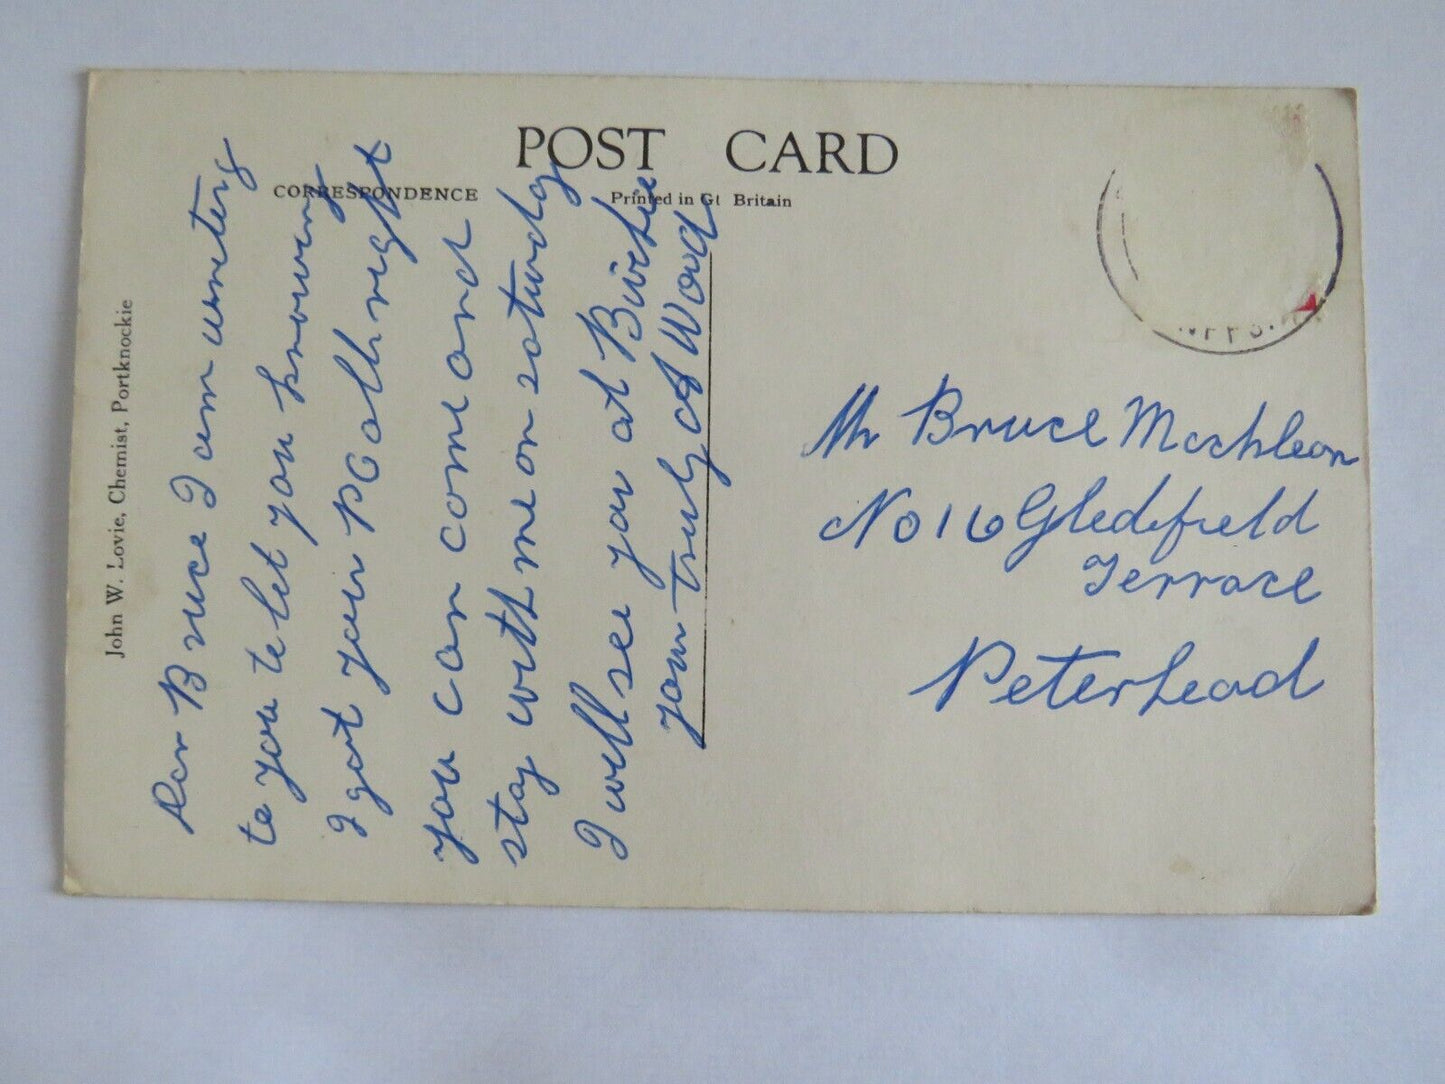 POST CARD
CORRESPONDENCE
Printed in Gt Britain
John W. Lovie, Chemist, Portknockie
Dear Bruce I am writing
to you to let you knowing
I got your PC all right
you can come and
stay with me on saturday
I will see you at Buckie
your truly A Wood
Mr Bruce Machlean
No 16 Gledfield
Terrace
Peterhead